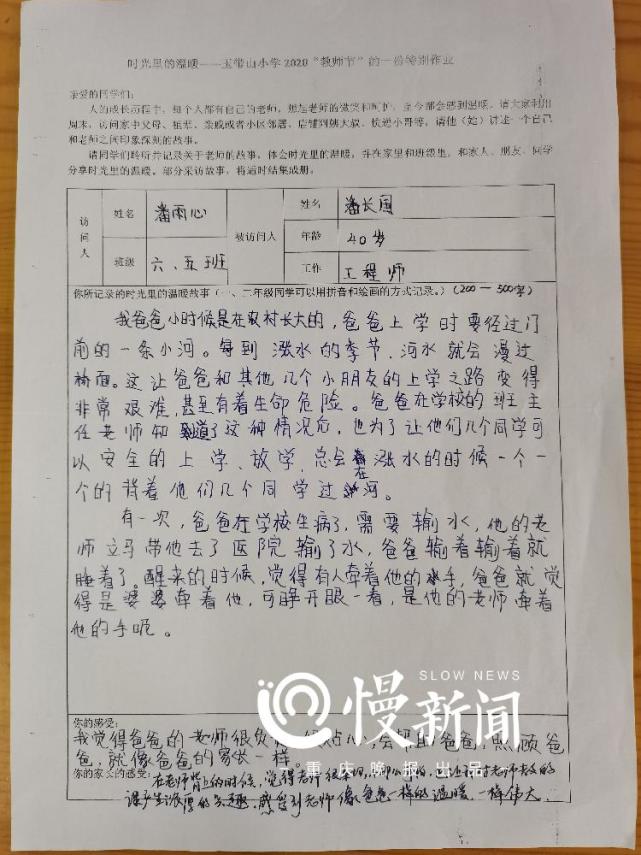 时光里的温暖——玉带山小学2020“教师节”的一份特别作业
亲爱的同学们：
人的成长历程中，每个人都有自己的老师，想起老师的微笑和呵护，至今都会感到温暖。请大家利用
周末，访问家中父母、祖辈、亲戚或者小区邻居、店铺阿姨大叔、快递小哥等，请他（她）讲述一个自己
和老师之间印象深刻的故事。
请同学们聆听并记录关于老师的故事，体会时光里的温暖，并在家里和班级里，和家人、朋友、同学
分享时光里的温暖。部分采访故事，将适时结集成册。
访问人 姓名 潘雨心 被访问人 姓名 潘长国
年龄 40岁
班级 六、五班 工作 工程师
你所记录的时光里的温暖故事（一、二年级同学可以用拼音和绘画的方式记录。）（200—500字）
我爸爸小时候是在农村长大的，爸爸上学时要经过门
前的一条小河。每到涨水的季节，河水就会漫过
桥面。这让爸爸和其他几个小朋友的上学之路变得
非常艰难，甚至有着生命危险。爸爸在学校的班主
任老师知道了这种情况后，也为了让他们几个同学可
以安全的上学、放学，总会在涨水的时候一个一
个的背着他们几个同学过河。
有一次，爸爸在学校生病了，需要输水，他的老
师立马带他去了医院输了水，爸爸输着输着就
睡着了。醒来的时候，觉得有人牵着他的手，爸爸就觉
得是婆婆牵着他，可睁开眼一看，是他的老师牵着
他的手呢。
SLOW NEWS
慢新闻
重庆晚报出品
你的感受：
我觉得爸爸的老师很 会帮助爸爸，照顾爸
爸，就像爸爸的家长一样。
你的家长的感受：在老师背上的时候，觉得老师很 老师教的
课产生浓厚的兴趣，感受到老师像爸爸一样的温暖，一样伟大。